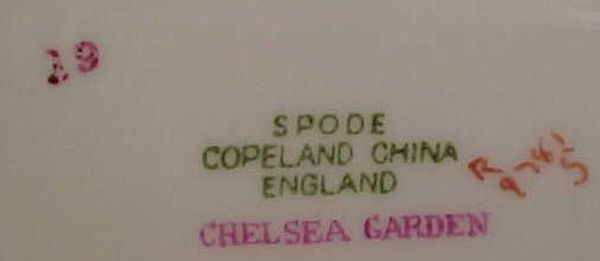 19
SPODE
COPELAND CHINA
ENGLAND
CHELSEA GARDEN